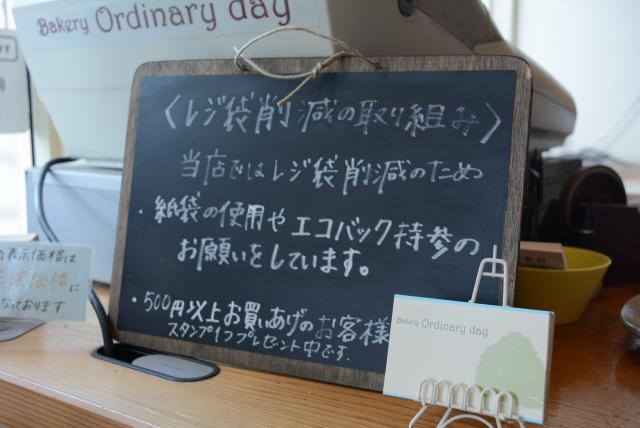 Bakery Ordinary day
〈レジ袋削減の取り組み〉
当店ではレジ袋削減のため
・紙袋の使用やエコバック持参の
お願いをしています。
・500円以上お買いあげのお客様
スタンプ1つプレゼント中です.
表示価格は
価格に
なっております
Bakery Ordinary day